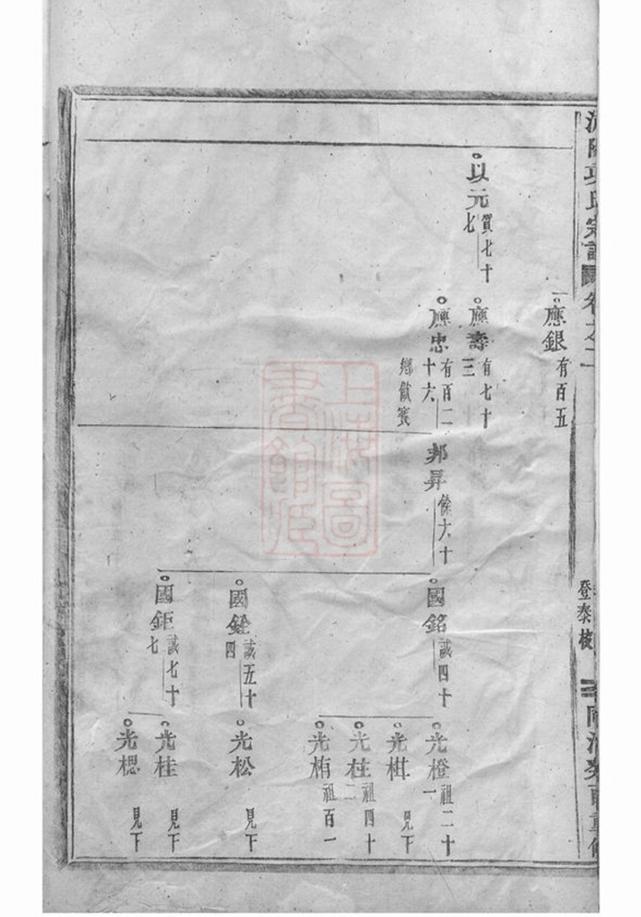 氏宗譜
卷之二
登泰校
癸酉重修
應銀 有百五
以元 質七十七
應壽 有七十三
應忠 有百二十六
鄉飲賓
邦昇 餘六十
國銘 誠四十
國銓 誠五十四
國鉅 誠七十七
光橙 祖二十一
光 見下
光柱 祖四十二
光 祖百一
光松 見下
光桂 見下
光楒 見下
上海圖書館藏